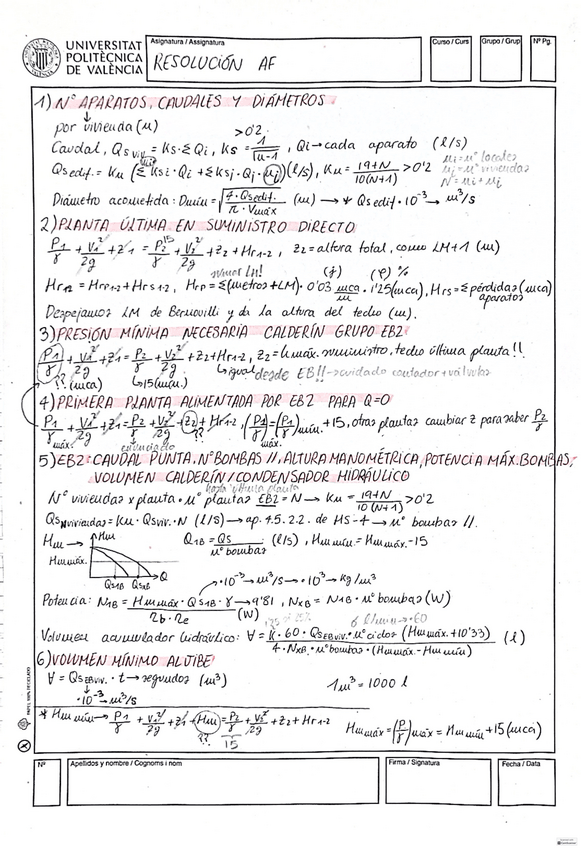 UNIVERSITAT
POLITÈCNICA
DE VALÈNCIA
Asignatura / Assignatura
RESOLUCIÓN AF
Curso / Curs
Grupo / Grup
Nº Pg.
1) Nº APARATOS, CAUDALES Y DIÁMETROS
por vivienda (n) >0'2
Caudal, Qs viv. = Ks · Σ Qi, Ks = 1/√(n-1), Qi → cada aparato (l/s)
Qs edif. = Ku (Σ Ksi · Qi + Σ Ksj · Qi · nj) (l/s), Ku = (19+N)/(10(N+1)) >0'2
ni = nº locales
nj = nº viviendas
N = ni + nj
Diámetro acometida: Dmín = √(4 · Qs edif. / π · Vmáx) (m) → * Qs edif · 10⁻³ → m³/s
2) PLANTA ÚLTIMA EN SUMINISTRO DIRECTO
P1/γ + V1²/2g + z1 = P2/γ + V2²/2g + z2 + Hr1-2, z2 = altura total, como LM+1 (m)
15
sumar LM! (J) (φ) %
Hr12 = Hrp1-2 + Hrs1-2, Hrp = Σ(metros + LM) · 0'03 mca/m · 1'25 (mca), Hrs = Σ pérdidas aparatos (mca)
Despejamos LM de Bernoulli y da la altura del techo (m).
3) PRESIÓN MÍNIMA NECESARIA CALDERÍN GRUPO EB2
P1/γ + V1²/2g + z1 = P2/γ + V2²/2g + z2 + Hr1-2, z2 = h máx. suministro, techo última planta!!
?? (mca) ↳15 (mín.) ↳igual desde EB!! → cuidado contador + válvulas
4) PRIMERA PLANTA ALIMENTADA POR EB2 PARA Q=0
P1/γ + V1²/2g + z1 = P2/γ + V2²/2g + z2 + Hr1-2, (P1/γ)máx. = (P1/γ)mín. + 15, otras plantas cambiar z para saber P2/γ
máx. enunciado ??
5) EB2: CAUDAL PUNTA, Nº BOMBAS //, ALTURA MANOMÉTRICA, POTENCIA MÁX. BOMBAS,
VOLUMEN CALDERÍN/CONDENSADOR HIDRÁULICO
hasta última planta
Nº viviendas x planta · nº plantas EB2 = N → Ku = (19+N)/(10(N+1)) >0'2
QsNviviendas = Ku · Qsviv. · N (l/s) → ap. 4.5.2.2. de HS-4 → nº bombas //.
Hm → Hm Q1B = Qs / nº bombas (l/s), Hm mín. = Hm máx. - 15
Hm máx.
Qs1B QsxB Q
· 10⁻³ → m³/s → · 10³ → kg/m³
Potencia: N1B = Hm máx · Qs1B · γ → 9'81 / ηb · ηe (W), NxB = N1B · nº bombas (W)
Volumen acumulador hidráulico: V = K · 60 · QsEBviv. · nº ciclos (Hm máx + 10'33) / 4 · NxB · nº bombas · (Hm máx - Hm mín) (l)
6) VOLUMEN MÍNIMO ALJIBE
V = Qs EBviv. · t → segundos (m³) 1 m³ = 1000 l
· 10⁻³ → m³/s
* Hm mín → P1/γ + V1²/2g + z1 + Hm = P2/γ + V2²/2g + z2 + Hr1-2
?? 15
Hm máx = (P/γ)máx = Hm mín + 15 (mca)
Nº
Apellidos y nombre / Cognoms i nom
Firma / Signatura
Fecha / Data